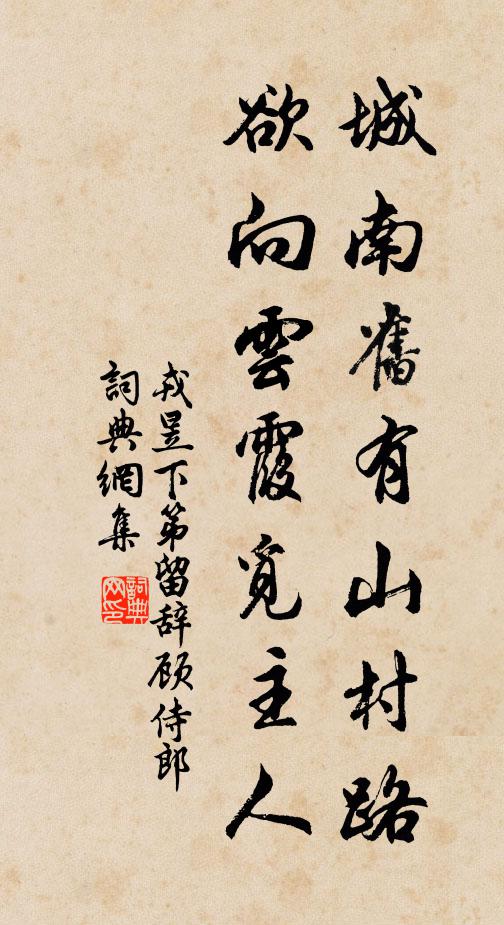 城南舊有山村路
欲向雲霞覓主人
戎昱下第留辞顾侍郎
詞典網集
詞典网印